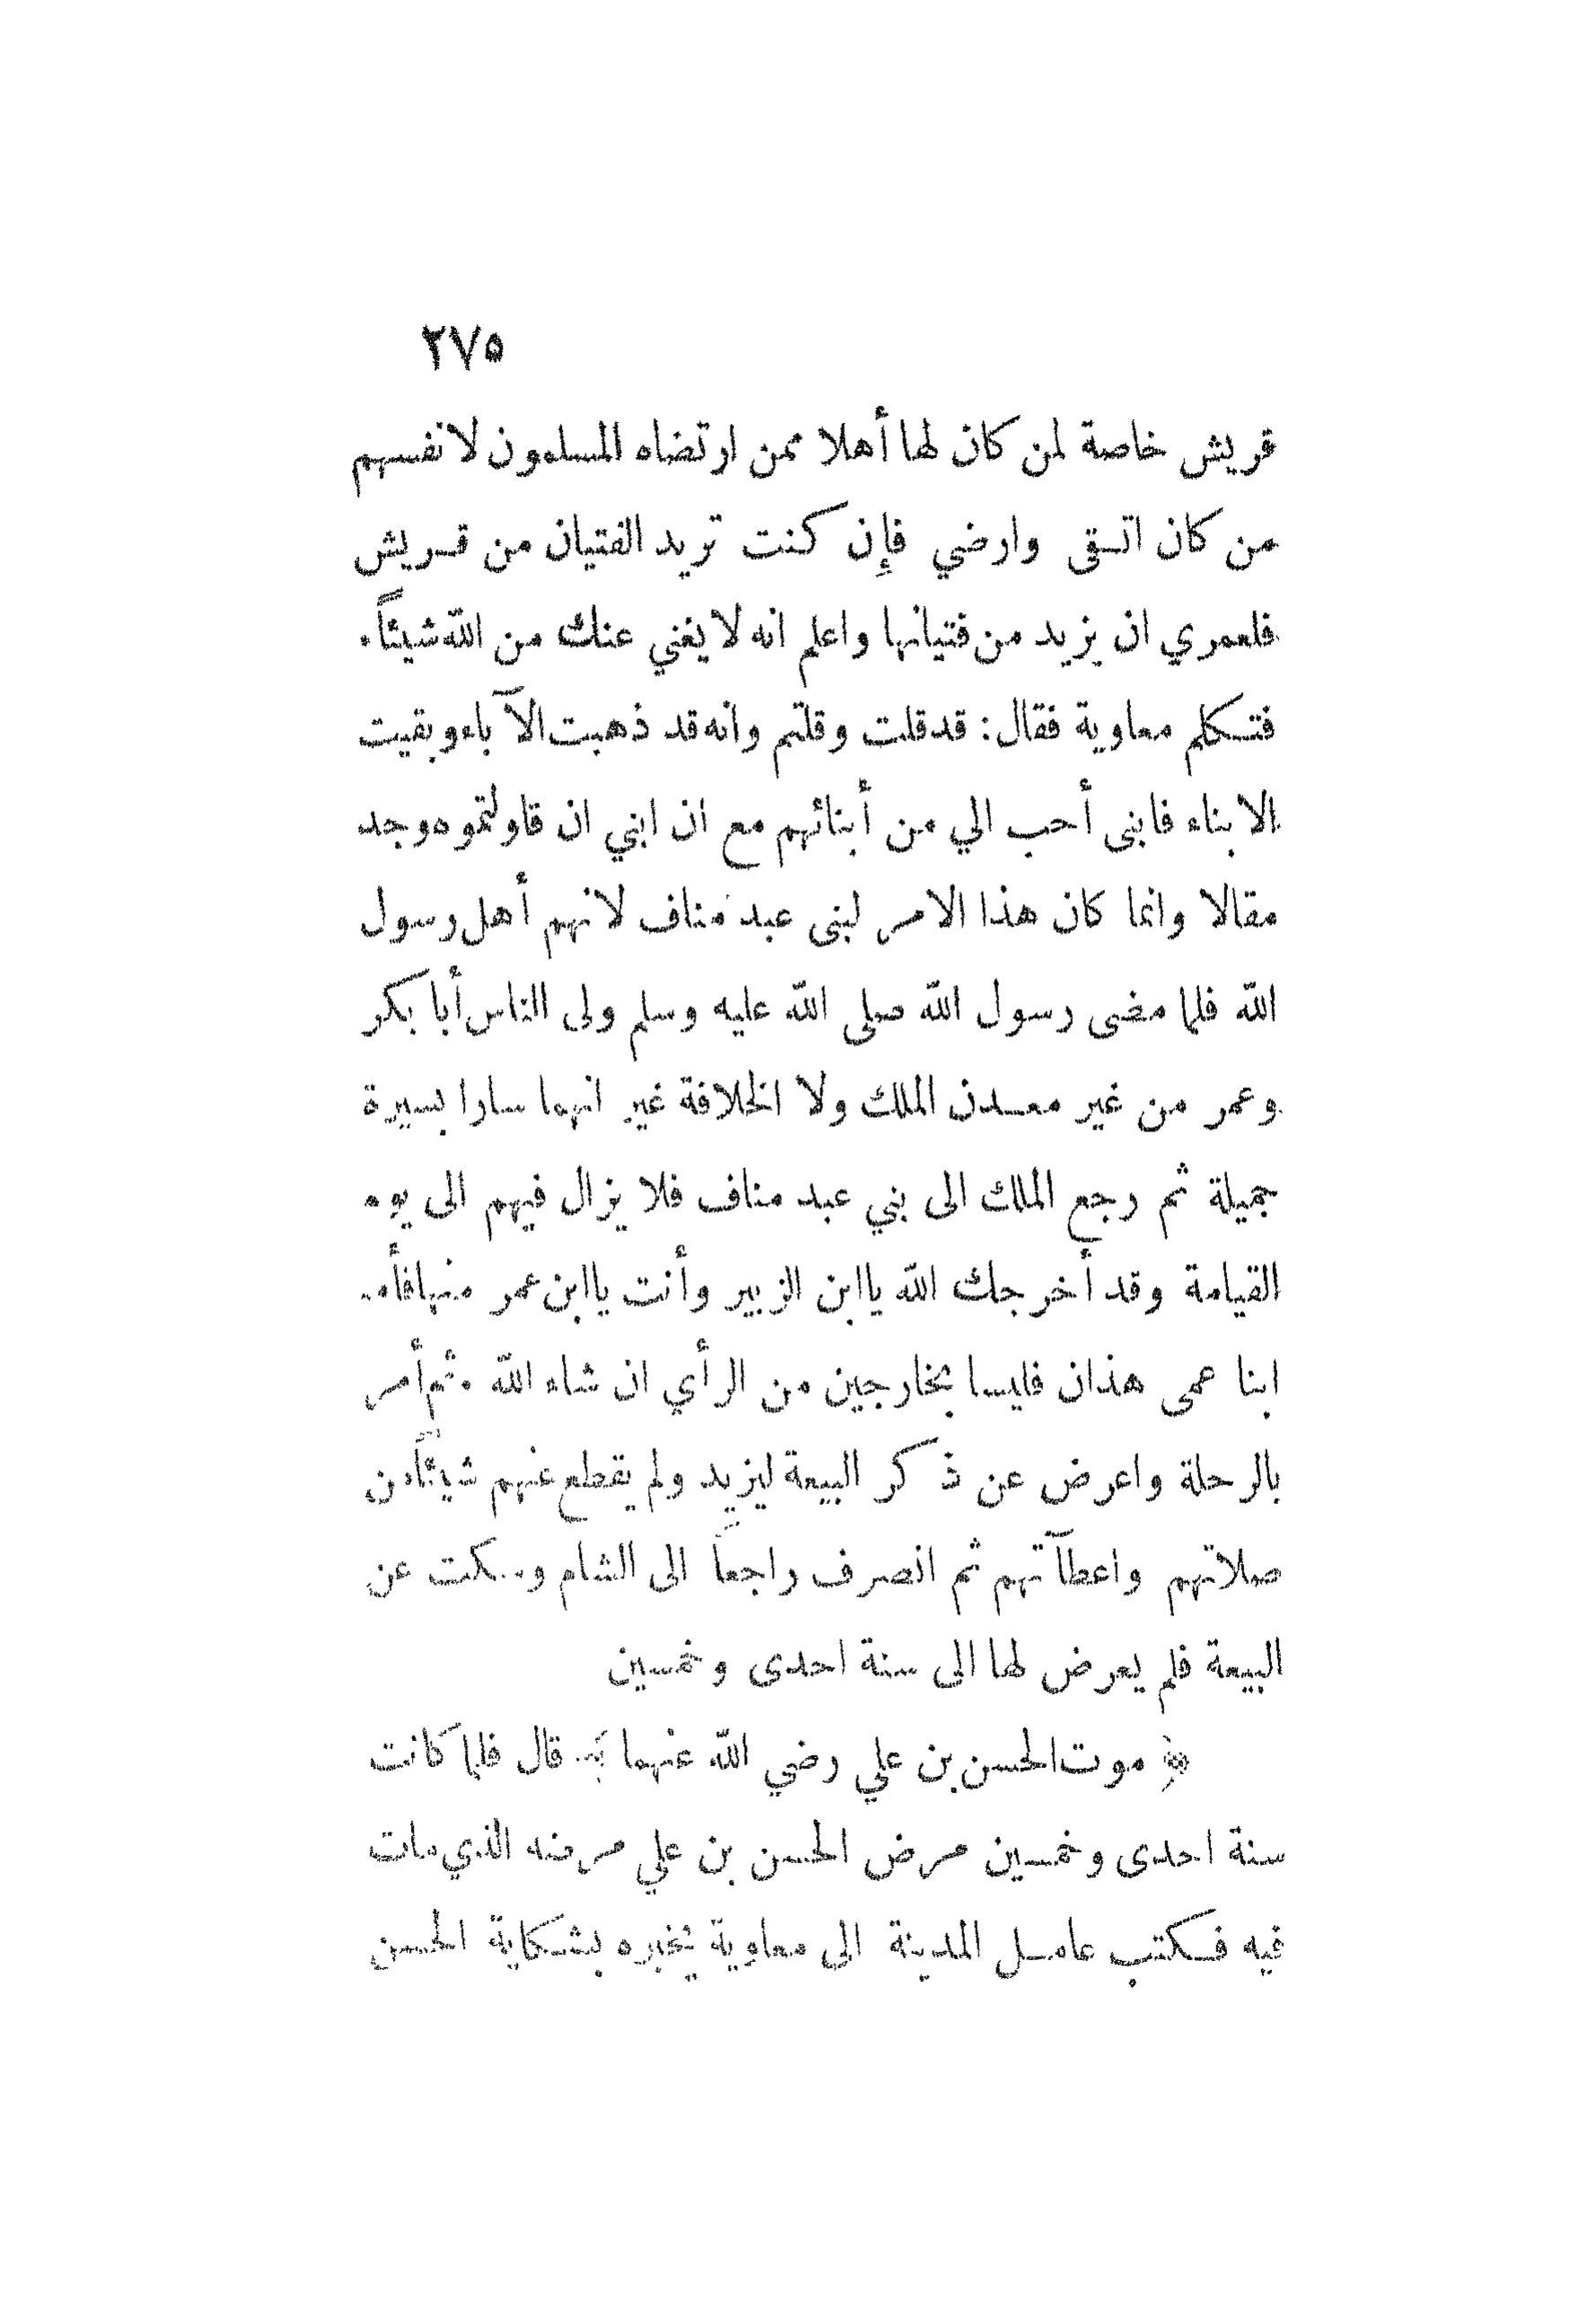 ٢٧٥
قريش خاصة لمن كان لها أهلا ممن ارتضاه المسلمون لانفسهم
من كان اتقى وارضي فإن كنت تريد الفتيان من قريش
فلعمري ان يزيد من فتيانها واعلم انه لا يغني عنك من الله شيئاً.
فتكلم معاوية فقال: قد قلت وقلتم وانه قد ذهبت الآباء وبقيت
الابناء فابنى أحب الي من أبنائهم مع ان ابني ان قاولتموه وجد
مقالا وانما كان هذا الامر لبنى عبد مناف لانهم أهل رسول
الله فلما مضى رسول الله صلى الله عليه وسلم ولى الناس أبا بكر
وعمر من غير معدن الملك ولا الخلافة غير انهما سارا بسيرة
جميلة ثم رجع الملك الى بني عبد مناف فلا يزال فيهم الى يوم
القيامة وقد أخرجك الله يا ابن الزبير وأنت يا ابن عمر منها فأما
ابنا عمى هذان فليسا بخارجين من الرأي ان شاء الله . ثم أمر
بالرحلة واعرض عن ذكر البيعة ليزيد ولم يقطع عنهم شيئاً من
صلاتهم واعطآتهم ثم انصرف راجعاً الى الشام وسكت عن
البيعة فلم يعرض لها الى سنة احدى وخمسين
﴿ موت الحسن بن علي رضي الله عنهما ﴾ قال فلما كانت
سنة احدى وخمسين مرض الحسن بن علي مرضه الذي مات
فيه فكتب عامل المدينة الى معاوية يخبره بشكاية الحسن